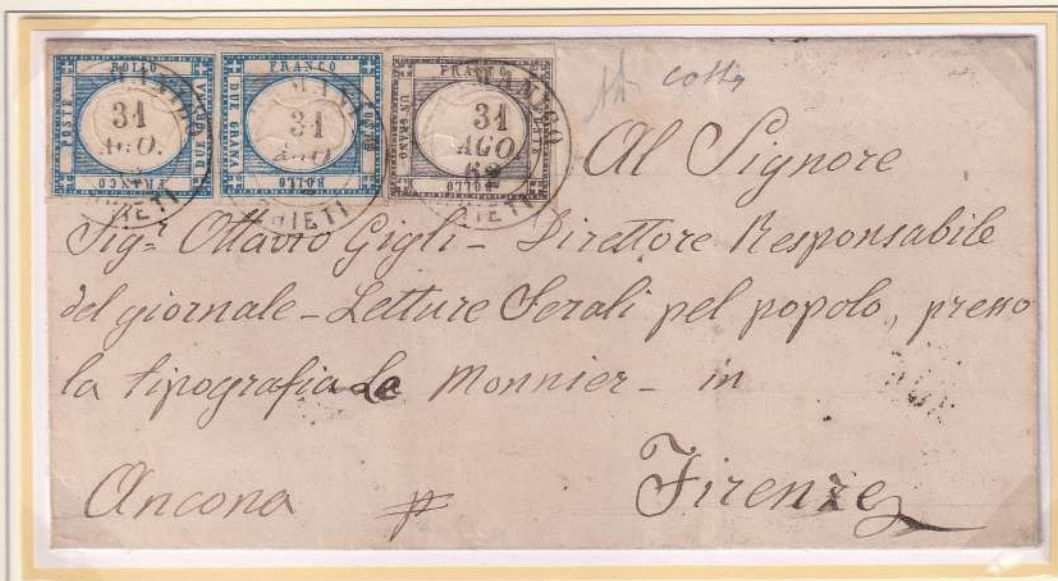 BOLLO
POSTE
DUE GRANA
FRANCO
31
AGO.
CHIETI
FRANCO
DUE GRANA
BOLLO
31
AGO
CHIETI
FRANCO
UN GRANO
POSTE
BOLLO
31
AGO
62
CHIETI
Al Signore
Sigr Ottavio Gigli - Direttore Responsabile
del giornale - Letture Serali pel popolo, presso
la tipografia Le Monnier - in
Ancona Firenze